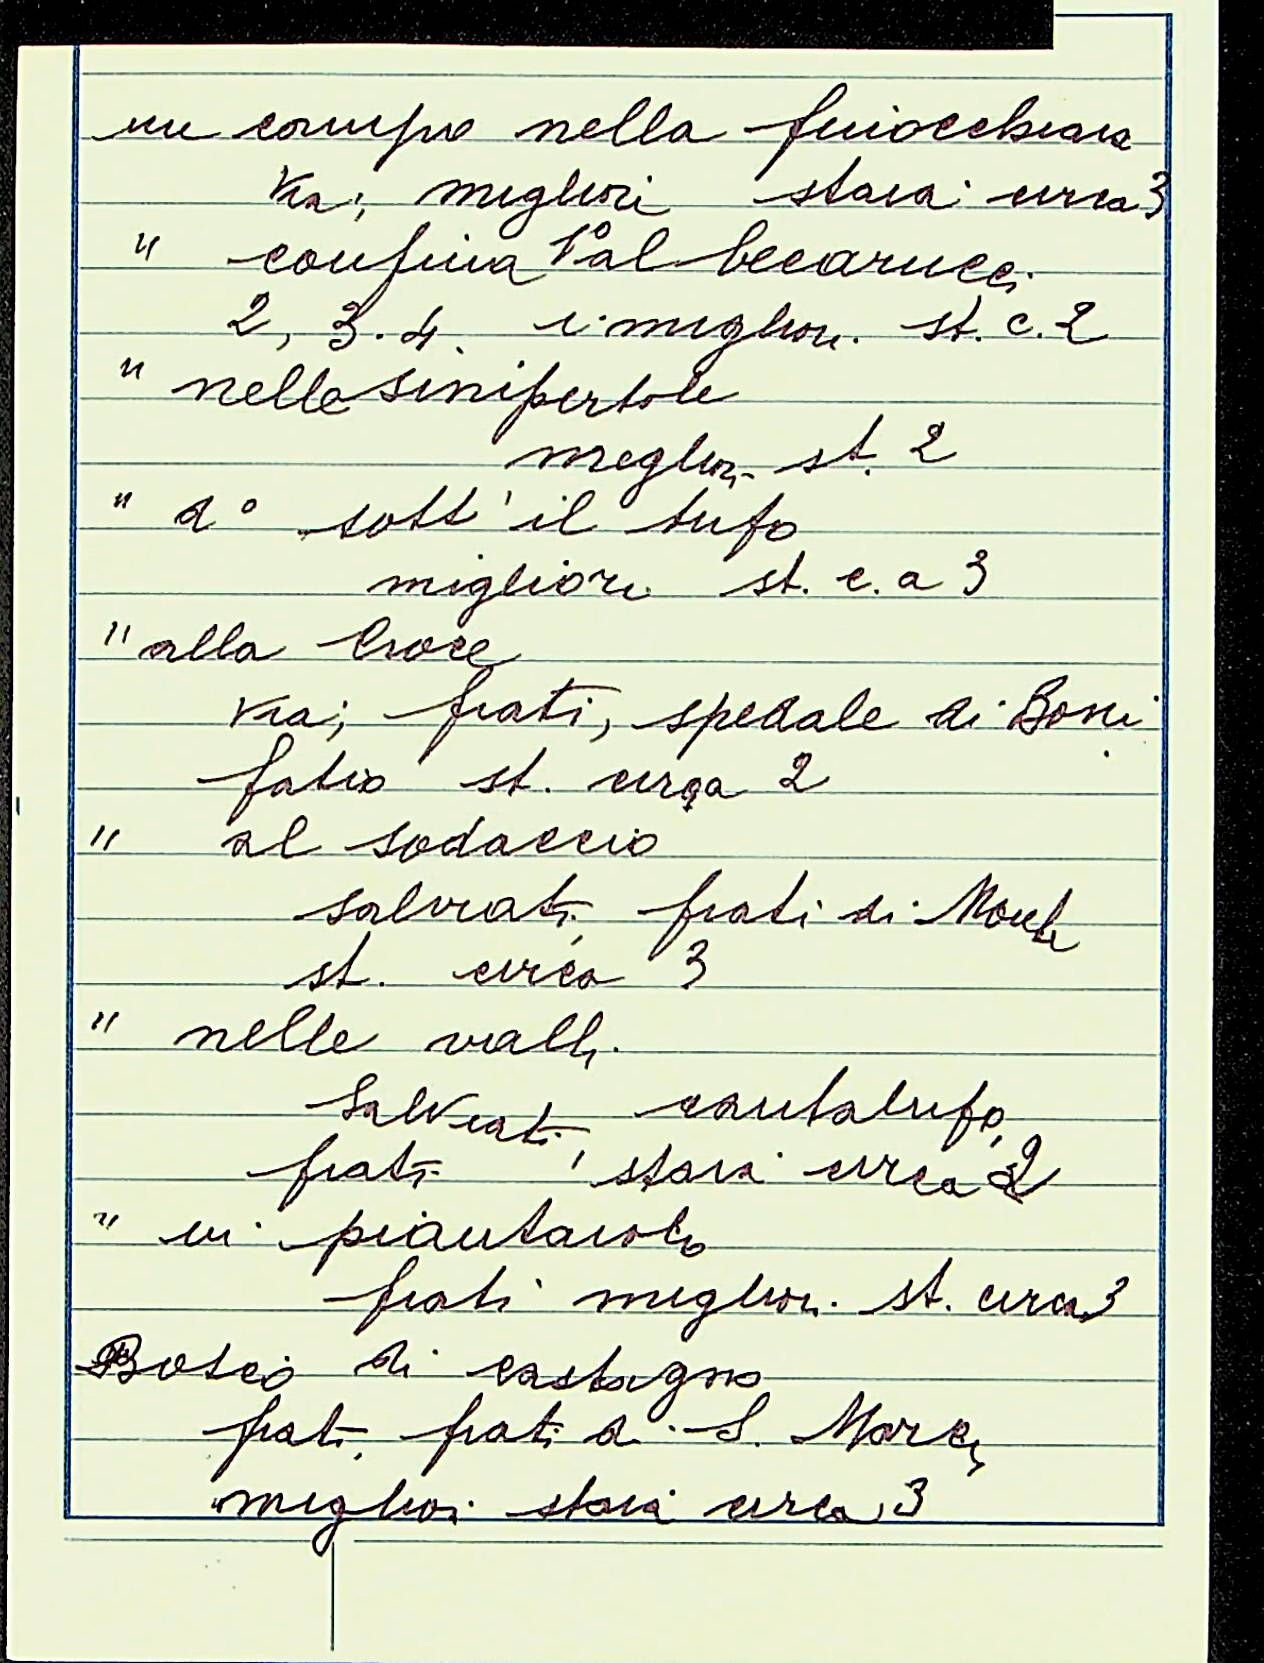 un campo nella finocchiara
via; migliori staia circa 3
" confina 1° al becarucci
2, 3. 4. i miglior. st. c. 2
" nelle sinipertole
miglior. st. 2
" d° sott' il tufo
migliori st. c. a 3
" alla Croce
via; frati, spedale di Boni
fatio st. circa 2
" al sodaccio
salviati, frati di Monte
st. circa 3
" nelle valli.
Salviati, cantalupo,
frati, staia circa 2
" in piantaiolo
frati miglior. st. circa 3
Bosco di castagno
frati, frati d. S. Marco,
migliori staia circa 3